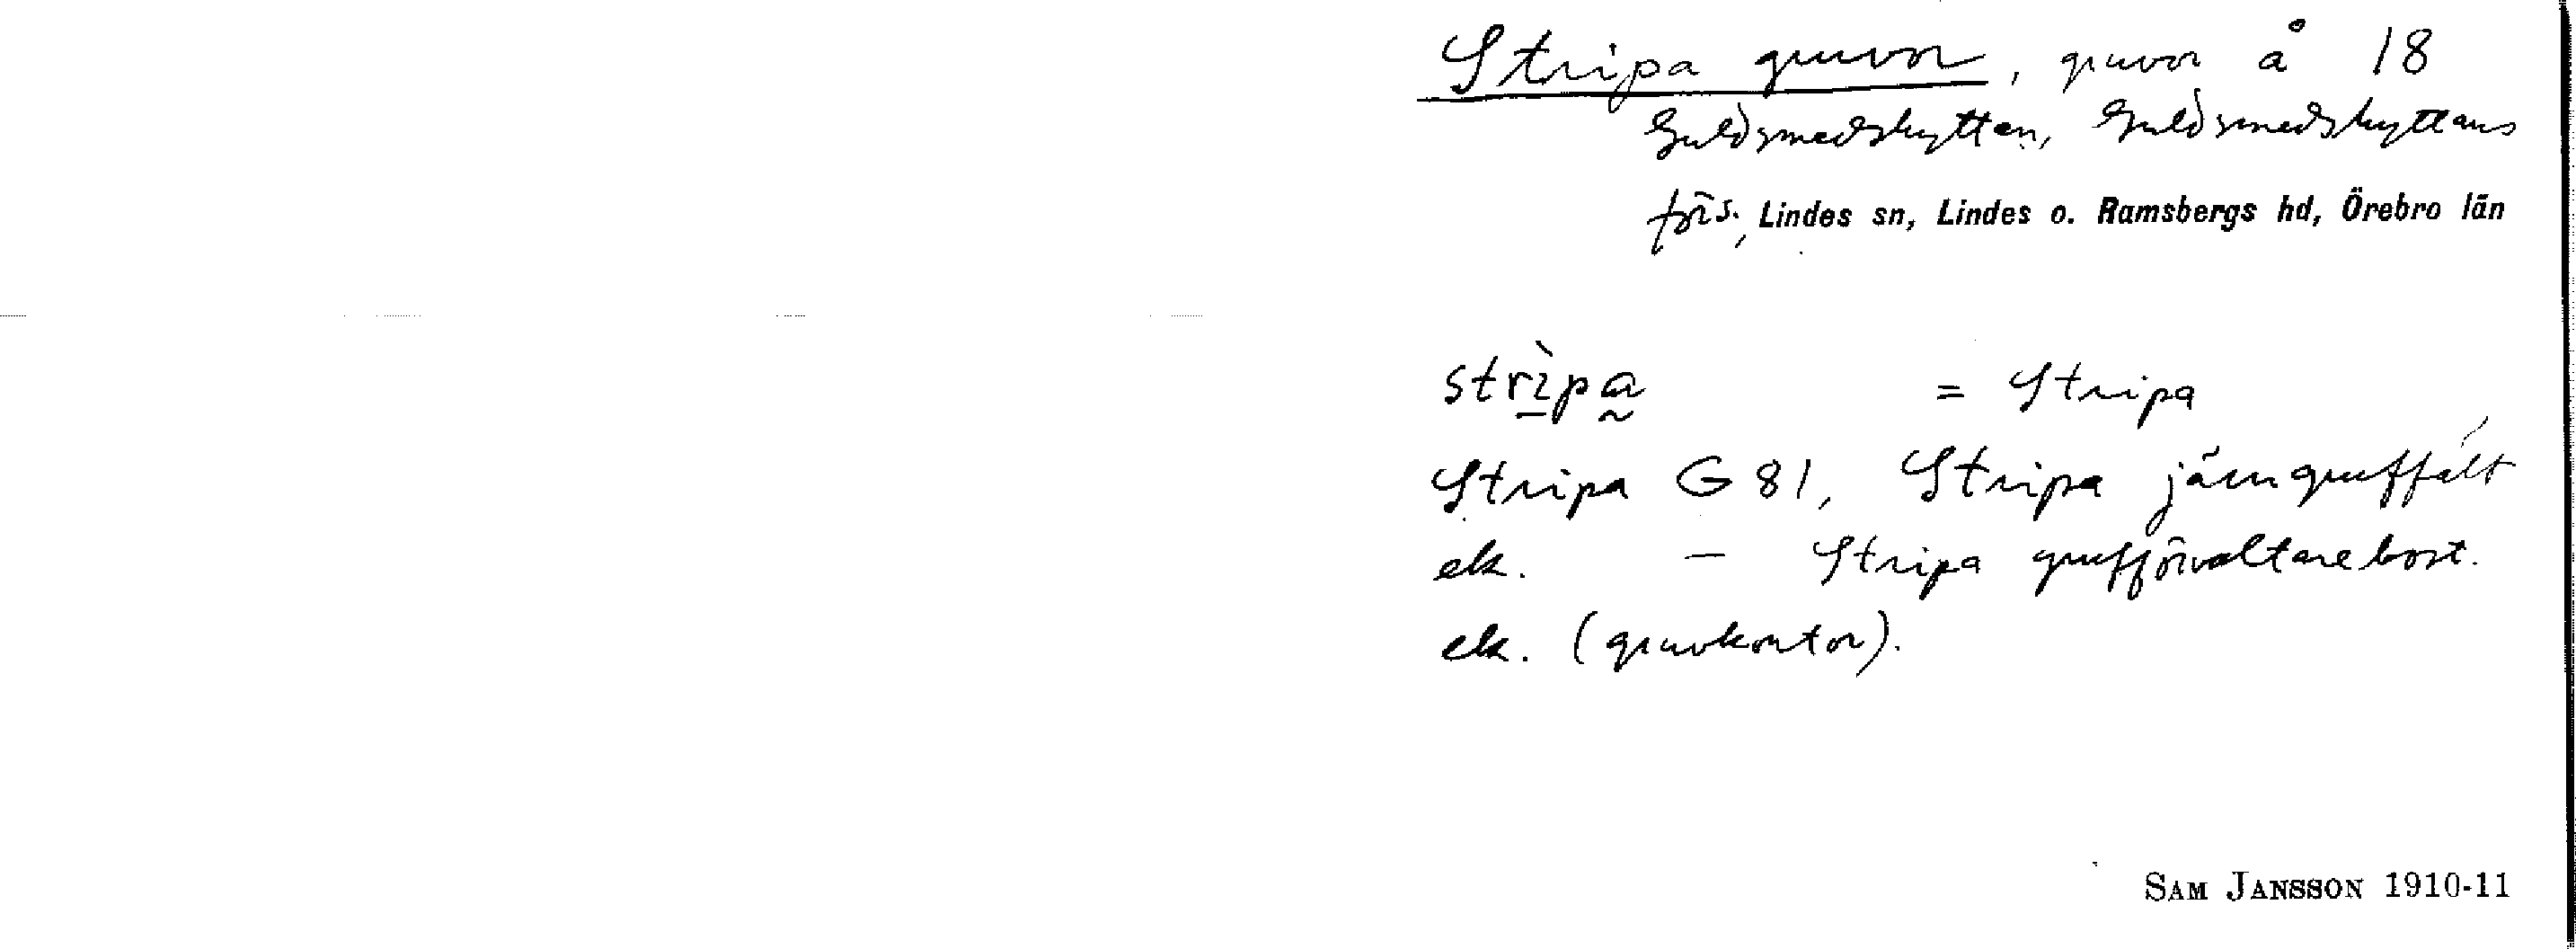 Stripa gruvor, gruvor å 18
Guldsmedshyttan, Guldsmedshyttans
förs., Lindes sn, Lindes o. Ramsbergs hd, Örebro län
strìpa = Stripa
Stripa G 81, Stripa järngruffält
ek. — Stripa grufförvaltarebost.
ek. (gruvkontor).
SAM JANSSON 1910-11